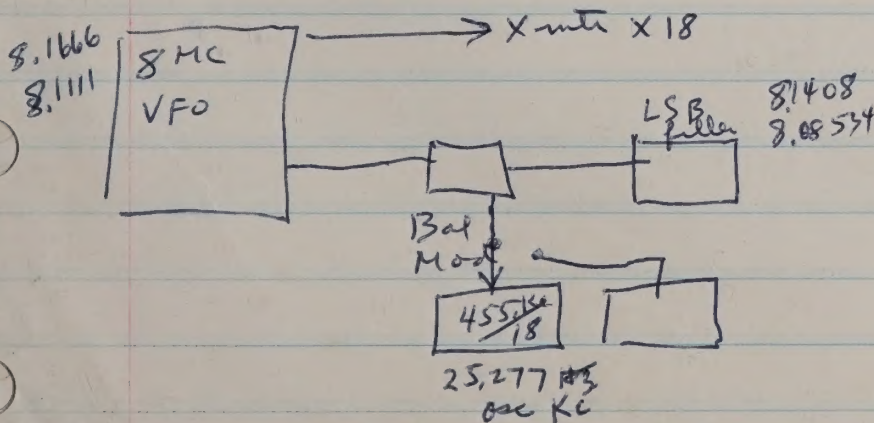 8.1666
8.1111
8 MC
VFO
Xmtr X 18
LSB
filter
8.1408
8.08534
Bal
Mod
455 Kc/18
25.277
osc Kc